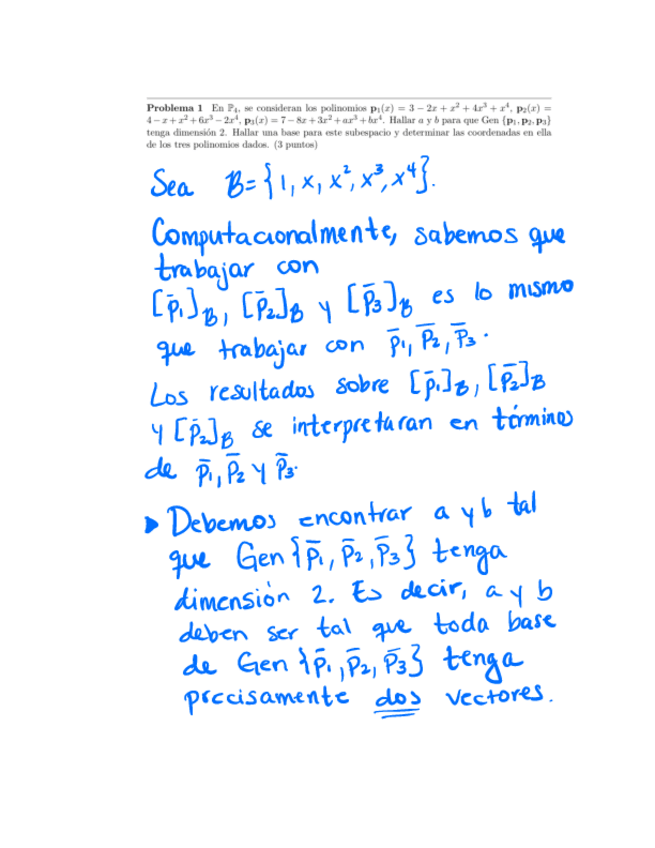 Problema 1 En ℙ₄, se consideran los polinomios p₁(x) = 3 − 2x + x² + 4x³ + x⁴, p₂(x) =
4 − x + x² + 6x³ − 2x⁴, p₃(x) = 7 − 8x + 3x² + ax³ + bx⁴. Hallar a y b para que Gen {p₁, p₂, p₃}
tenga dimensión 2. Hallar una base para este subespacio y determinar las coordenadas en ella
de los tres polinomios dados. (3 puntos)
Sea B = {1, x, x², x³, x⁴}.
Computacionalmente, sabemos que
trabajar con
[p̄₁]_B, [p̄₂]_B y [p̄₃]_B es lo mismo
que trabajar con p̄₁, p̄₂, p̄₃.
Los resultados sobre [p̄₁]_B, [p̄₂]_B
y [p̄₂]_B se interpretaran en términos
de p̄₁, p̄₂ y p̄₃.
▸ Debemos encontrar a y b tal
que Gen {p̄₁, p̄₂, p̄₃} tenga
dimensión 2. Es decir, a y b
deben ser tal que toda base
de Gen {p̄₁, p̄₂, p̄₃} tenga
precisamente dos vectores.